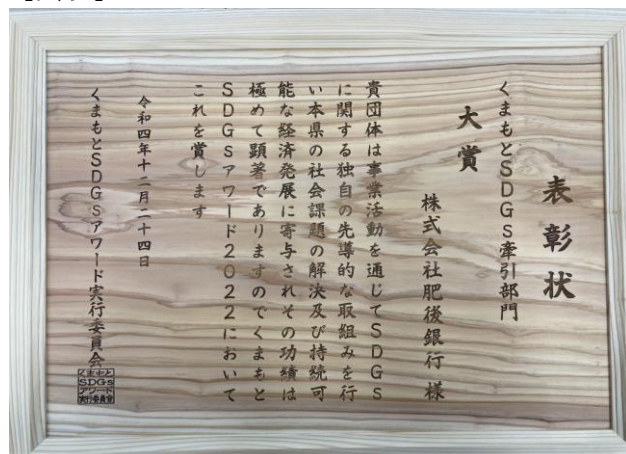 表彰状
くまもとSDGs牽引部門
大賞
株式会社肥後銀行様
貴団体は事業活動を通じてSDGs
に関する独自の先導的な取組みを行
い本県の社会課題の解決及び持続可
能な経済発展に寄与されその功績は
極めて顕著でありますのでくまもと
SDGsアワード2022において
これを賞します
令和四年十二月二十四日
くまもとSDGsアワード実行委員会
くまもと
SDGs
アワード
実行委員会